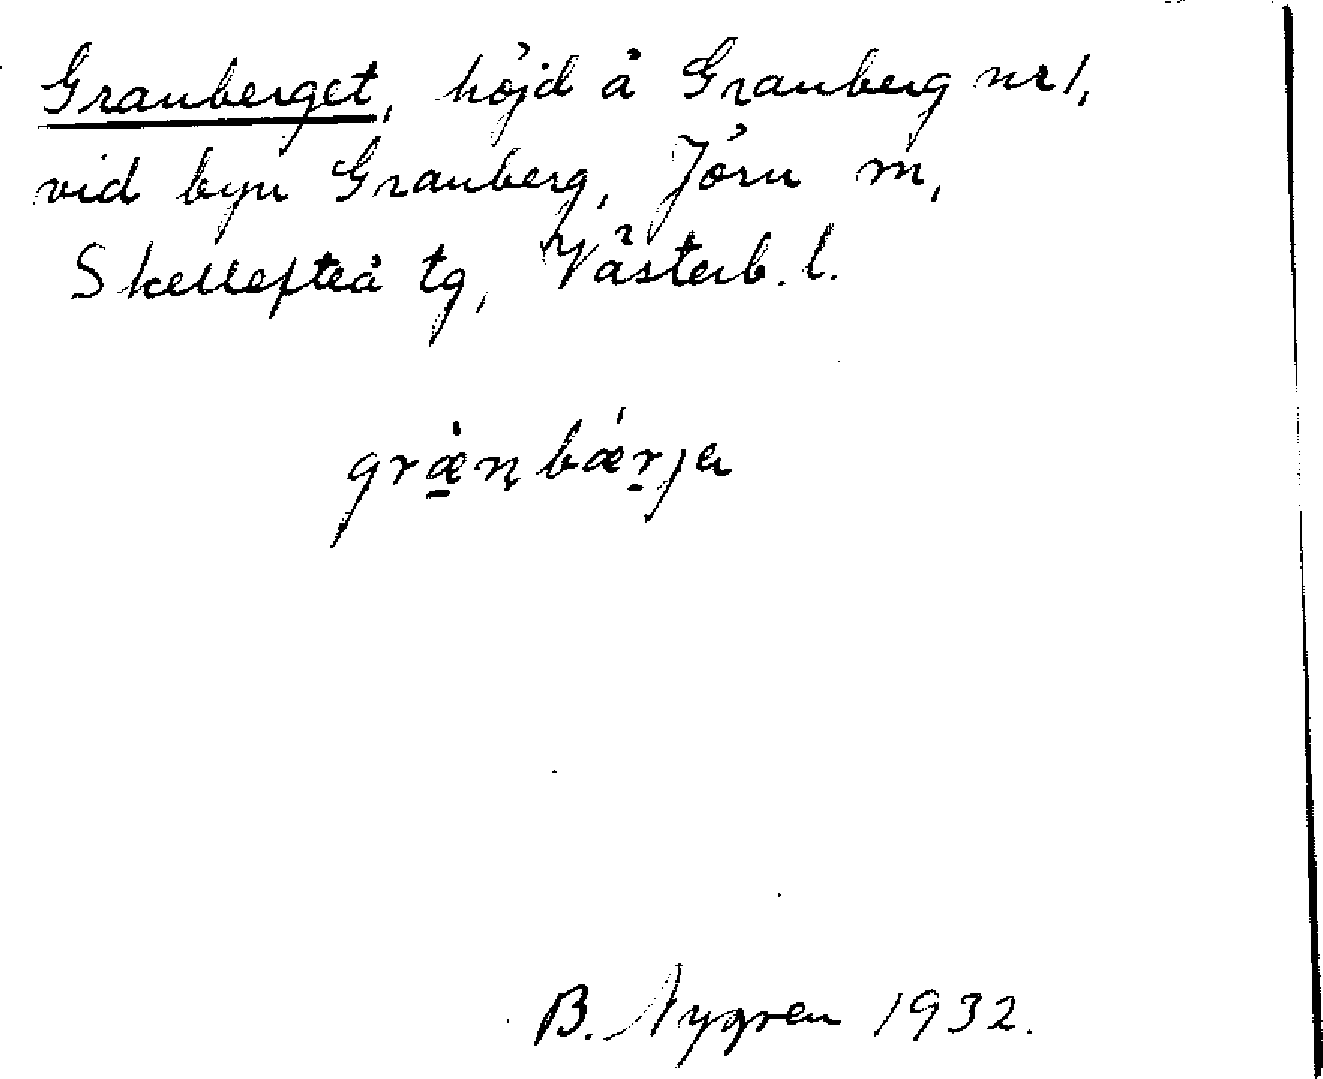 Granberget, höjd å Granberg nr 1,
vid byn Granberg, Jörn m,
Skellefteå tg, Västerb. l.
græ̱̀n̨bǽṟja
B. Nygren 1932.